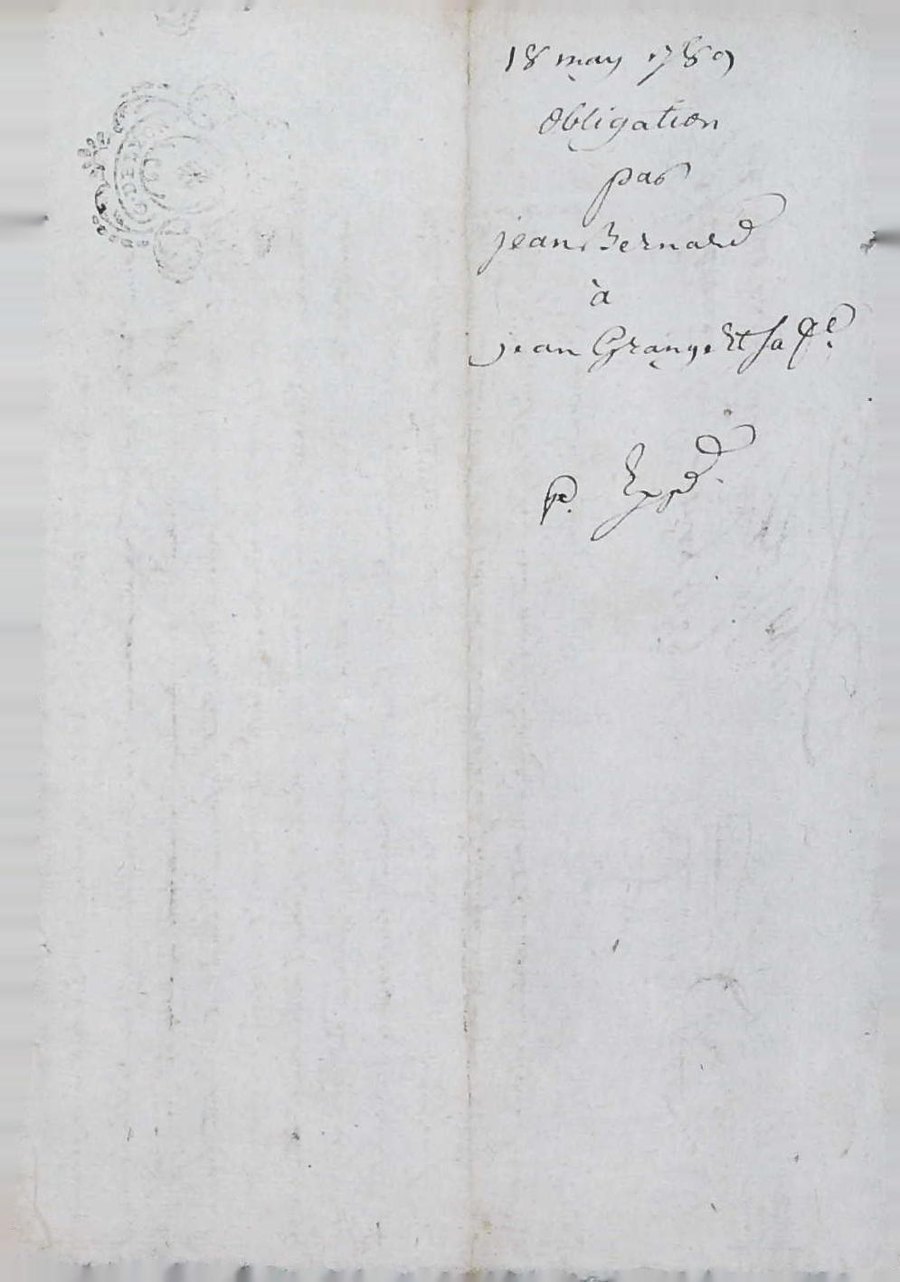 18 may 1789
Obligation
par
jean Bernard
à
jean Grange Et sa f.e
p. Expd.